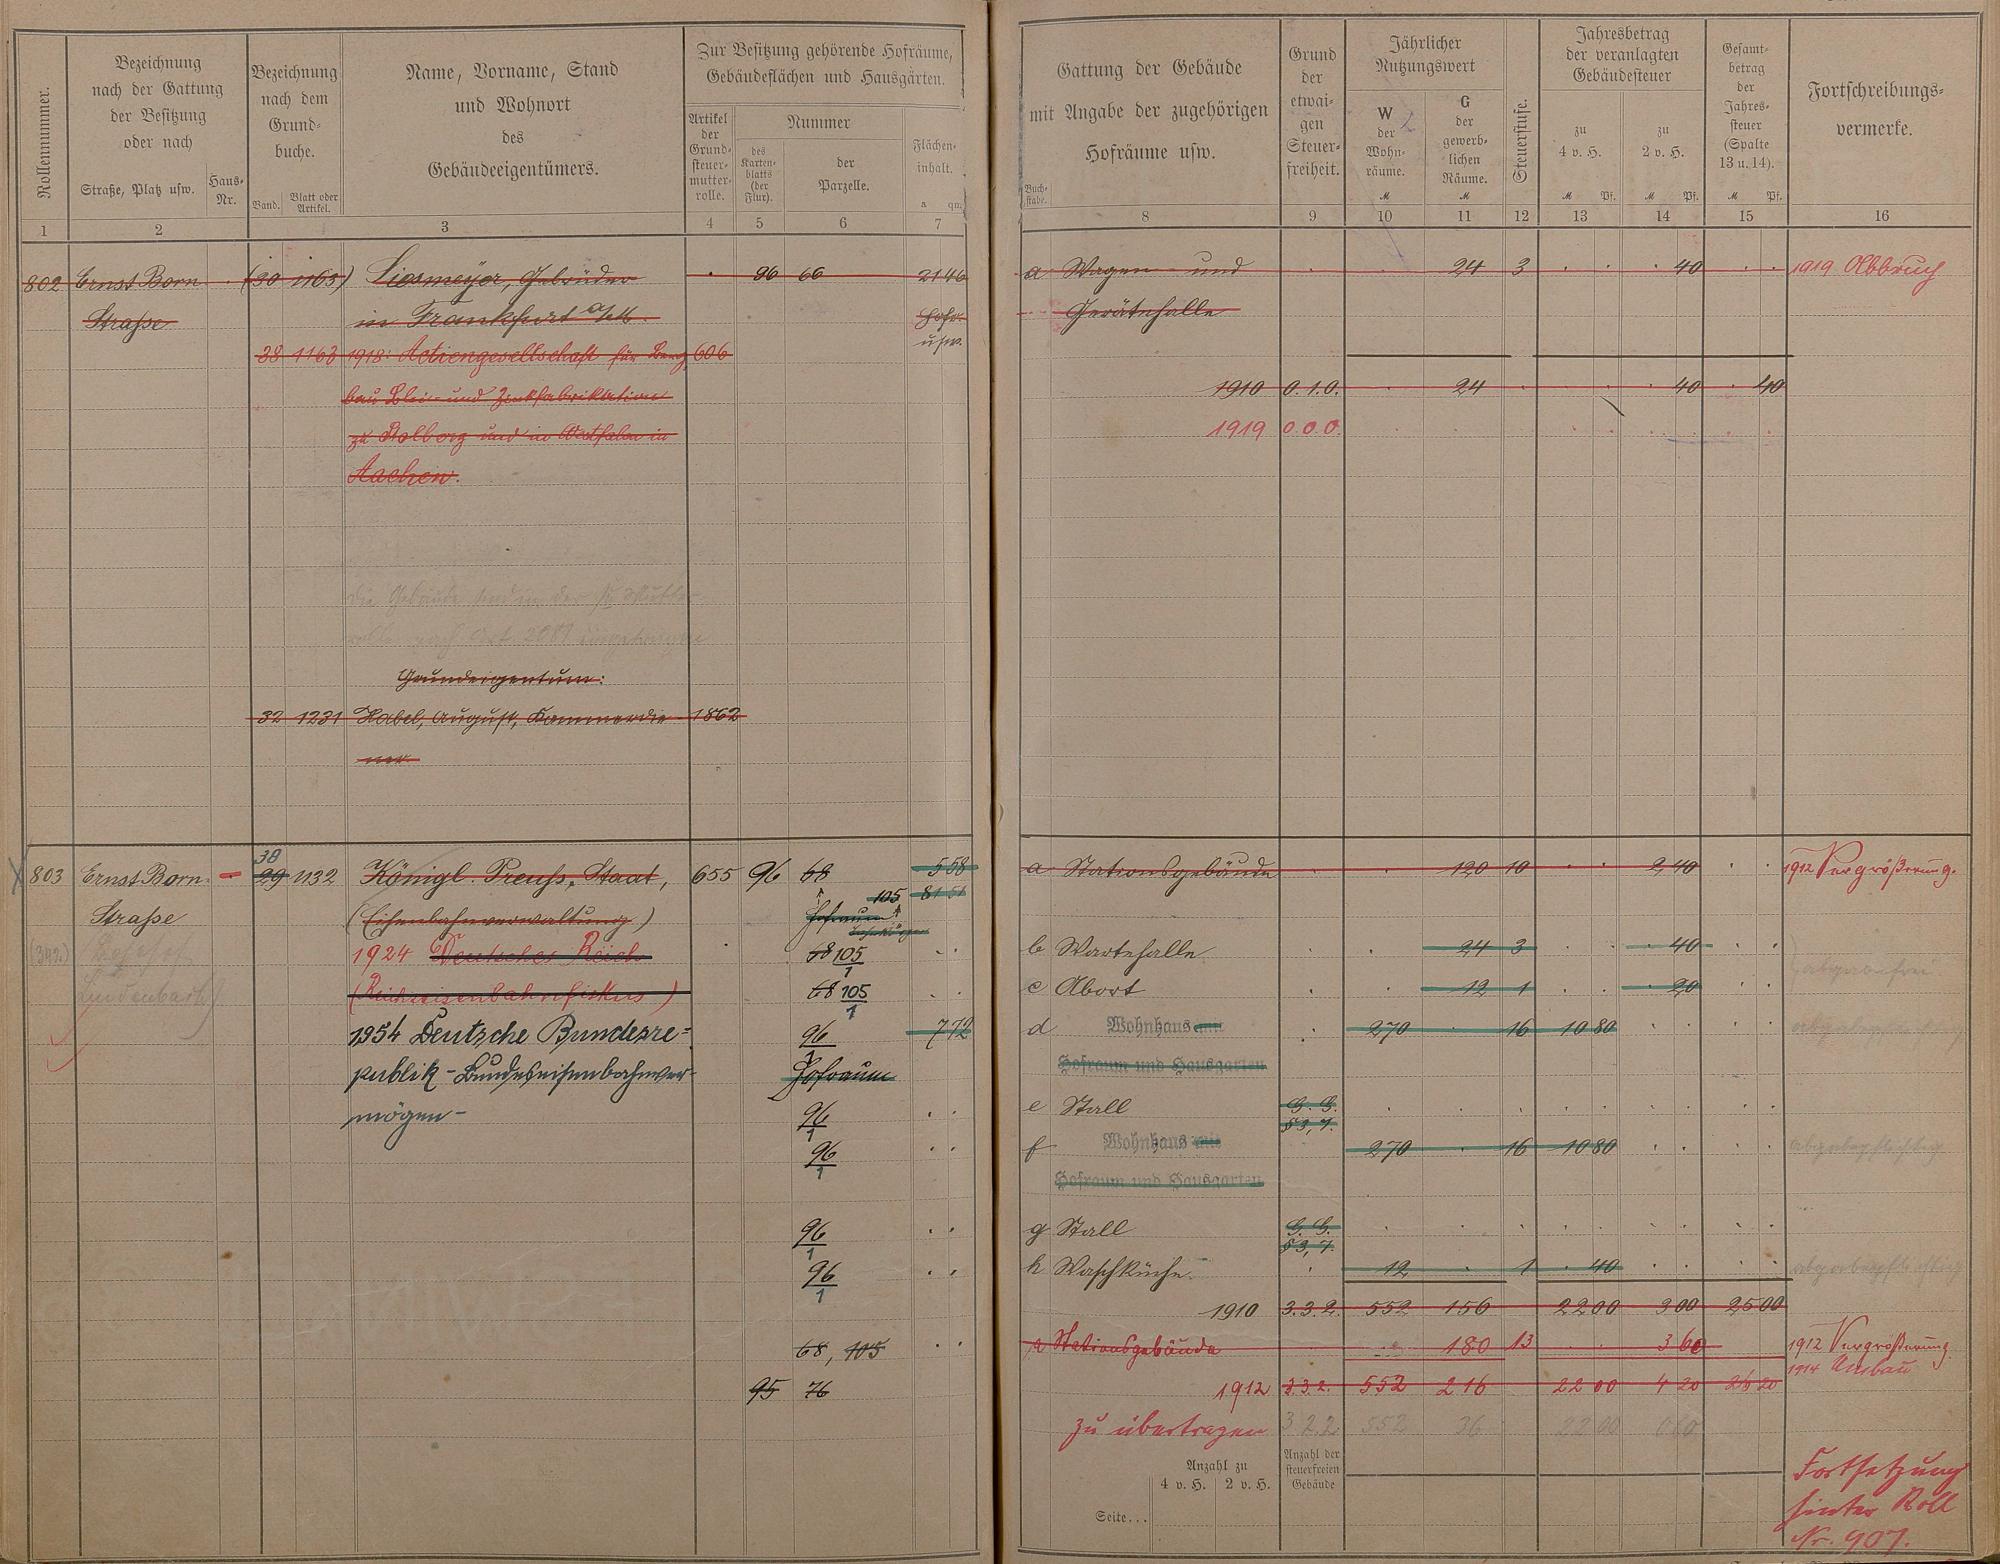 Rollennummer.
Bezeichnung
nach der Gattung
der Besitzung
oder nach
Straße, Platz usw.
Haus-
Nr.
Bezeichnung
nach dem
Grund-
buche.
Band.
Blatt oder
Artikel.
Name, Vorname, Stand
und Wohnort
des
Gebäudeeigentümers.
Zur Besitzung gehörende Hofräume,
Gebäudeflächen und Hausgärten.
Artikel
der
Grund-
steuer-
mutter-
rolle.
Nummer
des
Karten-
blatts
(der
Flur).
der
Parzelle.
Flächen-
inhalt.
a qm
1 2 3 4 5 6 7
802 Ernst Born (30 1163) Liesmeyer, Gebrüder 96 66 2146
Straße in Frankfurt a/M. Hofr.
usw.
38 1163 1918: Actiengesellschaft für Berg 606
bau Blei- und Zinkfabrikation
zu Stolberg und in Westfalen in
Aachen.
die Gebäude sind in der
Grundeigentum:
32 1231 Habel, August, Kammerdie- 1862
ner
803 Ernst Born- 38 29 1132 Königl. Preuß. Staat, 655 96 68 558
Straße (Eisenbahnverwaltung) Hofraum 105 8151
1924 Deutsches Reich 68 105/1
(Reichseisenbahnfiskus) 68 105/1
1954 Deutsche Bundesre= 96 772
publik - Bundeseisenbahnver- Hofraum
mögen - 96/1
96/1
96/1
96/1
68, 105
95 76
Gattung der Gebäude
mit Angabe der zugehörigen
Hofräume usw.
Buch-
stabe.
Grund
der
etwai-
gen
Steuer-
freiheit.
Jährlicher
Nutzungswert
W
der
Wohn-
räume.
M
G
der
gewerb-
lichen
Räume.
M
Steuerstufe.
Jahresbetrag
der veranlagten
Gebäudesteuer
zu
4 v. H.
M Pf.
zu
2 v. H.
M Pf.
Gesamt-
betrag
der
Jahres-
steuer
(Spalte
13 u. 14).
M Pf.
Fortschreibungs-
vermerke.
8 9 10 11 12 13 14 15 16
a Wagen- und 24 3 40 1919 Abbruch
Gerätehalle
1910 0.1.0. 24 40 40
1919 0.0.0.
a Stationsgebäude 120 10 2 40 1912 Vergrößerung.
b Wartehalle 24 3 40
c Abort 12 1 20
d Wohnhaus mit 270 16 10 80
Hofraum und Hausgarten
e Stall G. G.
§ 3, 7.
f Wohnhaus mit 270 16 10 80
Hofraum und Hausgarten
g Stall G. G.
§ 3, 7.
h Waschküche. 12 1 40
1910 3.3.2. 552 156 22 00 3 00 25 00
a Stationsgebäude 180 13 3 60 1912 Vergrößerung.
1914 Umbau
1912 3.3.2. 552 216 22 00 4 20 26 20
zu übertragen 3 2.2 552 36 22 00 0 60
Anzahl zu
4 v. H. 2 v. H.
Anzahl der
steuerfreien
Gebäude
Seite...
Fortsetzung
hinter Roll
Nr. 907.